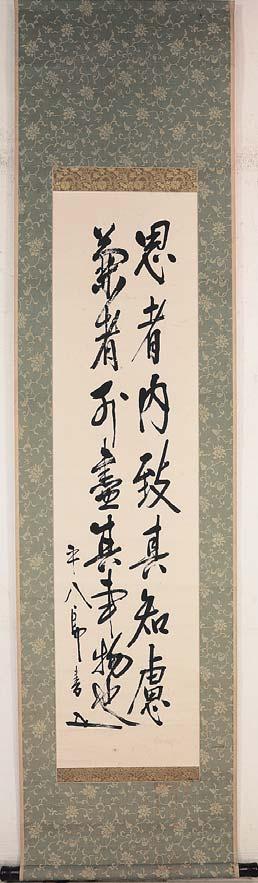 思者内致其知慮
業者外盡其事物也
平八郎書